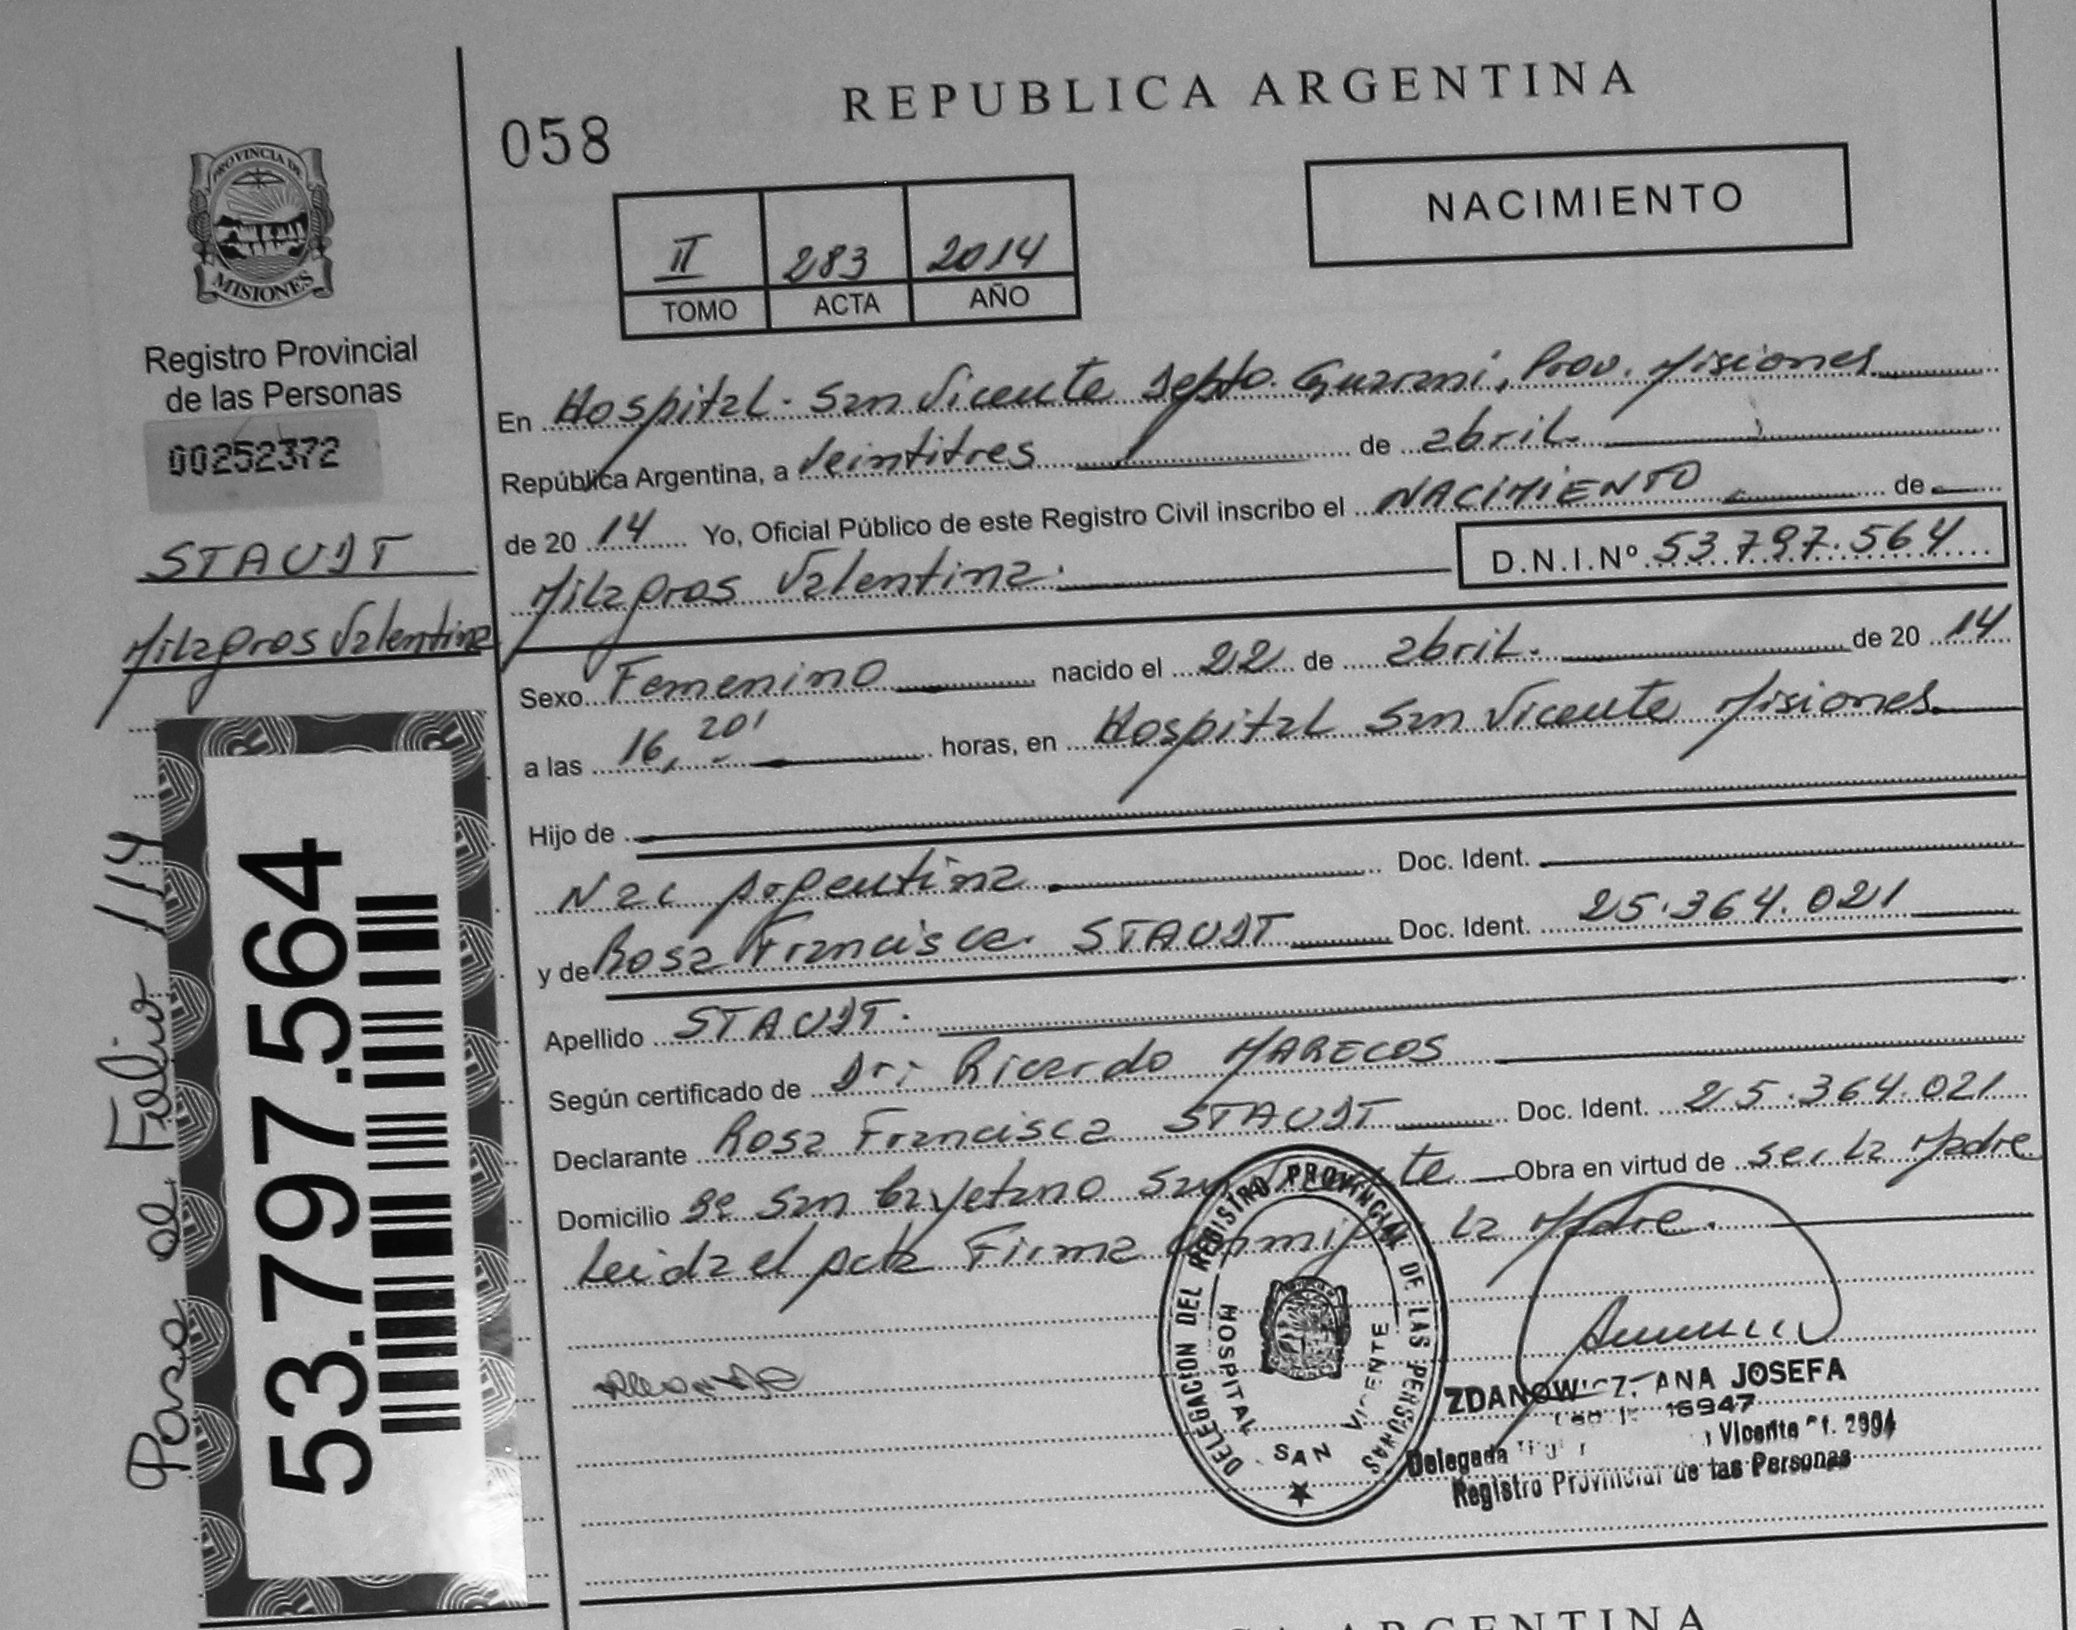 REPUBLICA ARGENTINA
058
NACIMIENTO
II 283 2014
TOMO ACTA AÑO
PROVINCIA DE
MISIONES
Registro Provincial
de las Personas
00252372
STAUDT
Milagros Valentina
Pase al Folio 114
53.797.564
En Hospital San Vicente Depto. Guaraní, Prov. Misiones
República Argentina, a Veintitres de abril
de 20 14 Yo, Oficial Público de este Registro Civil inscribo el NACIMIENTO de
Milagros Valentina. D.N.I.Nº 53.797.564
Sexo Femenino nacido el 22 de abril. de 20 14
a las 16,20' horas, en Hospital San Vicente Misiones
Hijo de
Nac Argentina Doc. Ident.
y de Rosa Francisca STAUDT Doc. Ident. 25.364.021
Apellido STAUDT.
Según certificado de Dr: Ricardo MARECOS
Declarante Rosa Francisca STAUDT Doc. Ident. 25.364.021
Domicilio Bº San Cayetano San Vicente Obra en virtud de ser la Madre
Leida el acta Firma Conmigo la Madre.
DELEGACION DEL REGISTRO PROVINCIAL DE LAS PERSONAS
HOSPITAL SAN VICENTE
ZDANOWICZ, ANA JOSEFA
16947
Delegada Vicente 2994
Registro Provincial de las Personas
ARGENTINA